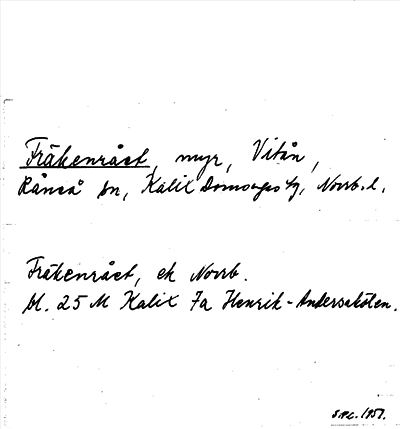 Fräkenråset, myr, Vitån,
Råneå sn, Kalix Domsagas tg, Norrb. l.
Fräkenråset, ek Norrb.
bl. 25 M Kalix 7a Henrik-Andersaköten.
1951.